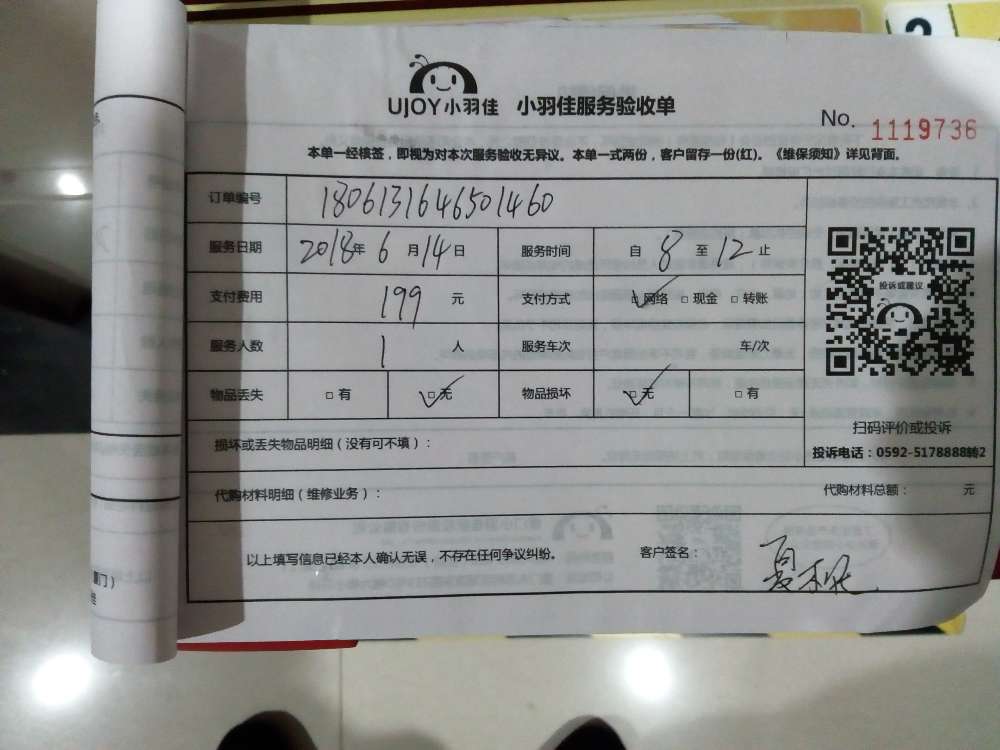 UJOY小羽佳 小羽佳服务验收单
No. 1119736
本单一经核签，即视为对本次服务验收无异议。本单一式两份，客户留存一份(红)。《维保须知》详见背面。
订单编号 1806131646501460
服务日期 2018年 6 月 14 日 服务时间 自 8 至 12 止
支付费用 199 元 支付方式 网络 现金 转账
服务人数 1 人 服务车次 车/次
物品丢失 有 无 物品损坏 无 有
投诉或建议
扫码评价或投诉
投诉电话：0592-5178888转2
损坏或丢失物品明细（没有可不填）：
代购材料明细（维修业务）： 代购材料总额： 元
以上填写信息已经本人确认无误，不存在任何争议纠纷。 客户签名：